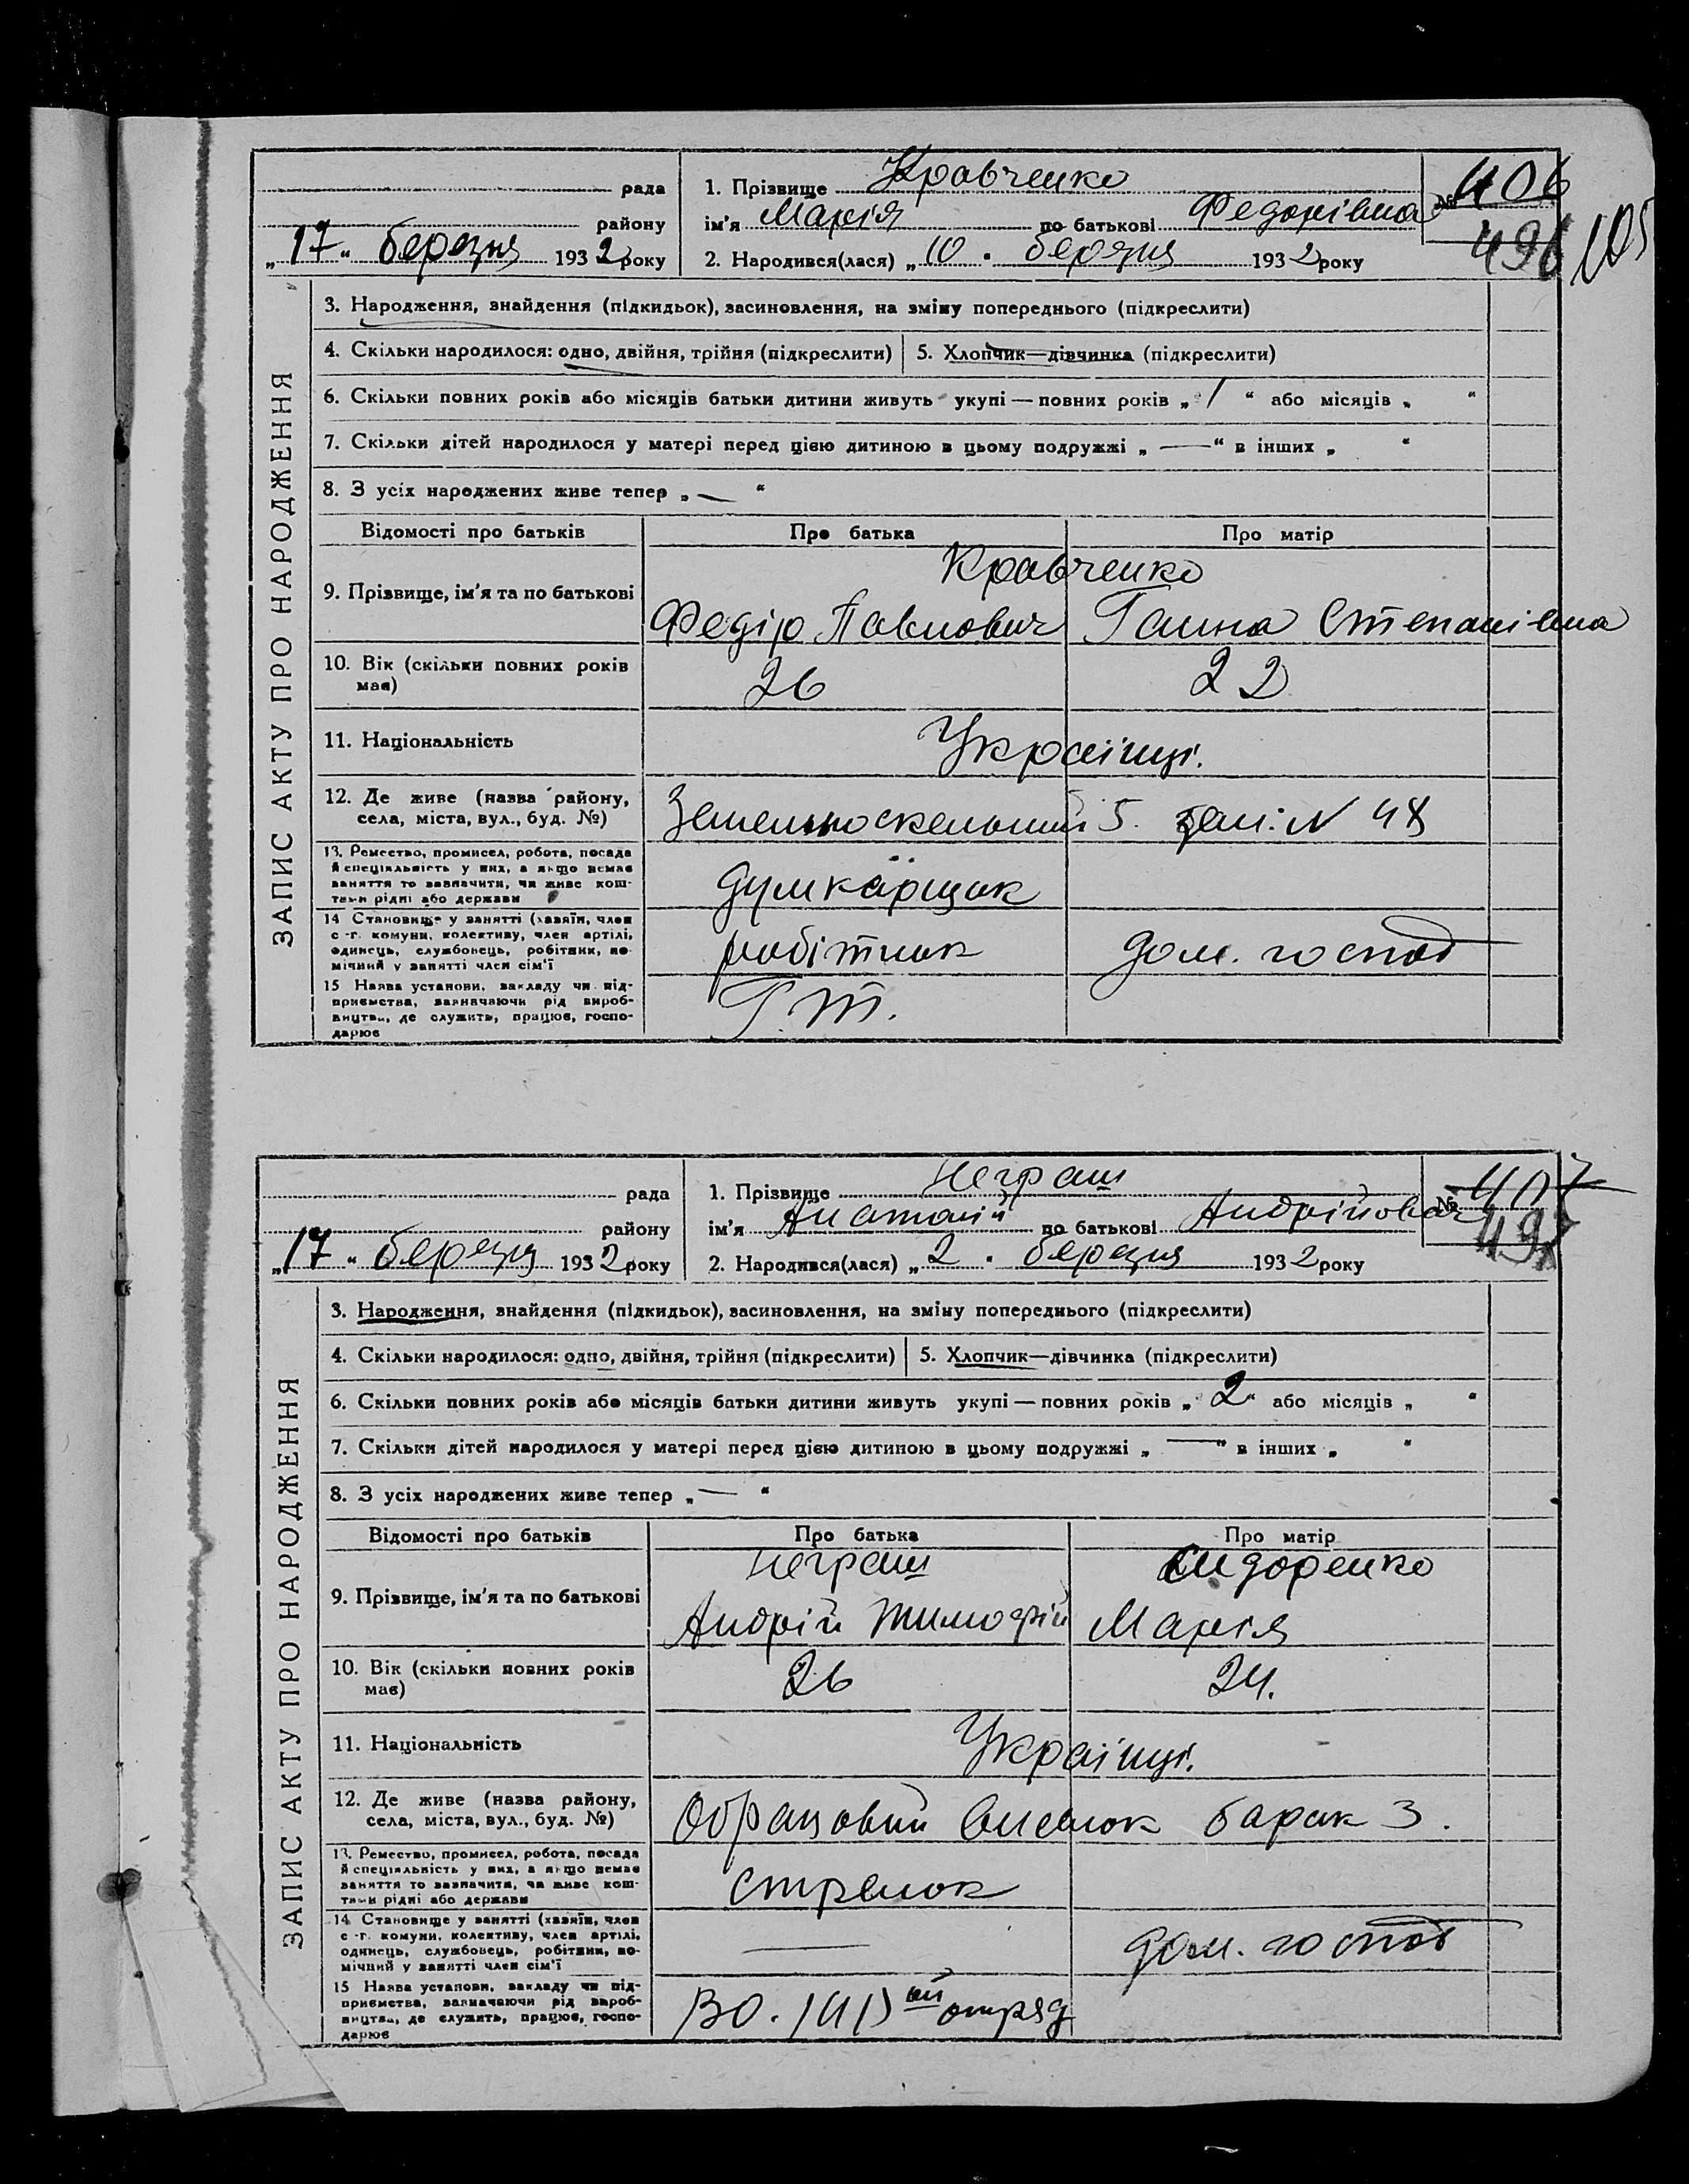 рада
району
„17“ березня 1932 року
1. Прізвище Кравченко
ім'я Марія по батькові Федорівна
2. Народився(лася) „10“ березня 1932 року
№ 406
496 105
ЗАПИС АКТУ ПРО НАРОДЖЕННЯ
3. Народження, знайдення (підкидьок), засиновлення, на зміну попереднього (підкреслити)
4. Скільки народилося: одно, двійня, трійня (підкреслити) 5. Хлопчик—дівчинка (підкреслити)
6. Скільки повних років або місяців батьки дитини живуть укупі — повних років „1“ або місяців „ “
7. Скільки дітей народилося у матері перед цією дитиною в цьому подружжі „—“ в інших „ “
8. З усіх народжених живе тепер „—“
Відомості про батьків Про батька Про матір
9. Прізвище, ім'я та по батькові
Кравченко
Федір Павлович Ганна Степанівна
10. Вік (скільки повних років має)
26 22
11. Національність
Українці.
12. Де живе (назва району, села, міста, вул., буд. №)
5. № 48
13. Ремество, промисел, робота, посада й спеціяльність у них, а якщо немає заняття то зазначити, чи живе коштами рідні або держави
14 Становище у занятті (хазяїн, член с.-г. комуни, колективу, член артілі, одинець, службовець, робітник, помічний у занятті член сім'ї
робітник дом. господ
15 Назва установи, закладу чи підприємства, зазначаючи рід виробництва, де служить, працює, господарює
Г. т.
рада
району
„17“ березня 1932 року
1. Прізвище Неграш
ім'я Анатолій по батькові Андрійович
2. Народився(лася) „2“ березня 1932 року
№ 407
497
ЗАПИС АКТУ ПРО НАРОДЖЕННЯ
3. Народження, знайдення (підкидьок), засиновлення, на зміну попереднього (підкреслити)
4. Скільки народилося: одно, двійня, трійня (підкреслити) 5. Хлопчик—дівчинка (підкреслити)
6. Скільки повних років або місяців батьки дитини живуть укупі — повних років „2“ або місяців „ “
7. Скільки дітей народилося у матері перед цією дитиною в цьому подружжі „—“ в інших „ “
8. З усіх народжених живе тепер „—“
Відомості про батьків Про батька Про матір
9. Прізвище, ім'я та по батькові
Неграш Сидоренко
Андрій Тимофій Марія
10. Вік (скільки повних років має)
26 24.
11. Національність
Українці.
12. Де живе (назва району, села, міста, вул., буд. №)
Образовий барак 3.
13. Ремество, промисел, робота, посада й спеціяльність у них, а якщо немає заняття то зазначити, чи живе коштами рідні або держави
стрелок
14 Становище у занятті (хазяїн, член с.-г. комуни, колективу, член артілі, одинець, службовець, робітник, помічний у занятті член сім'ї
— дом. господ
15 Назва установи, закладу чи підприємства, зазначаючи рід виробництва, де служить, працює, господарює
ВО. отряд